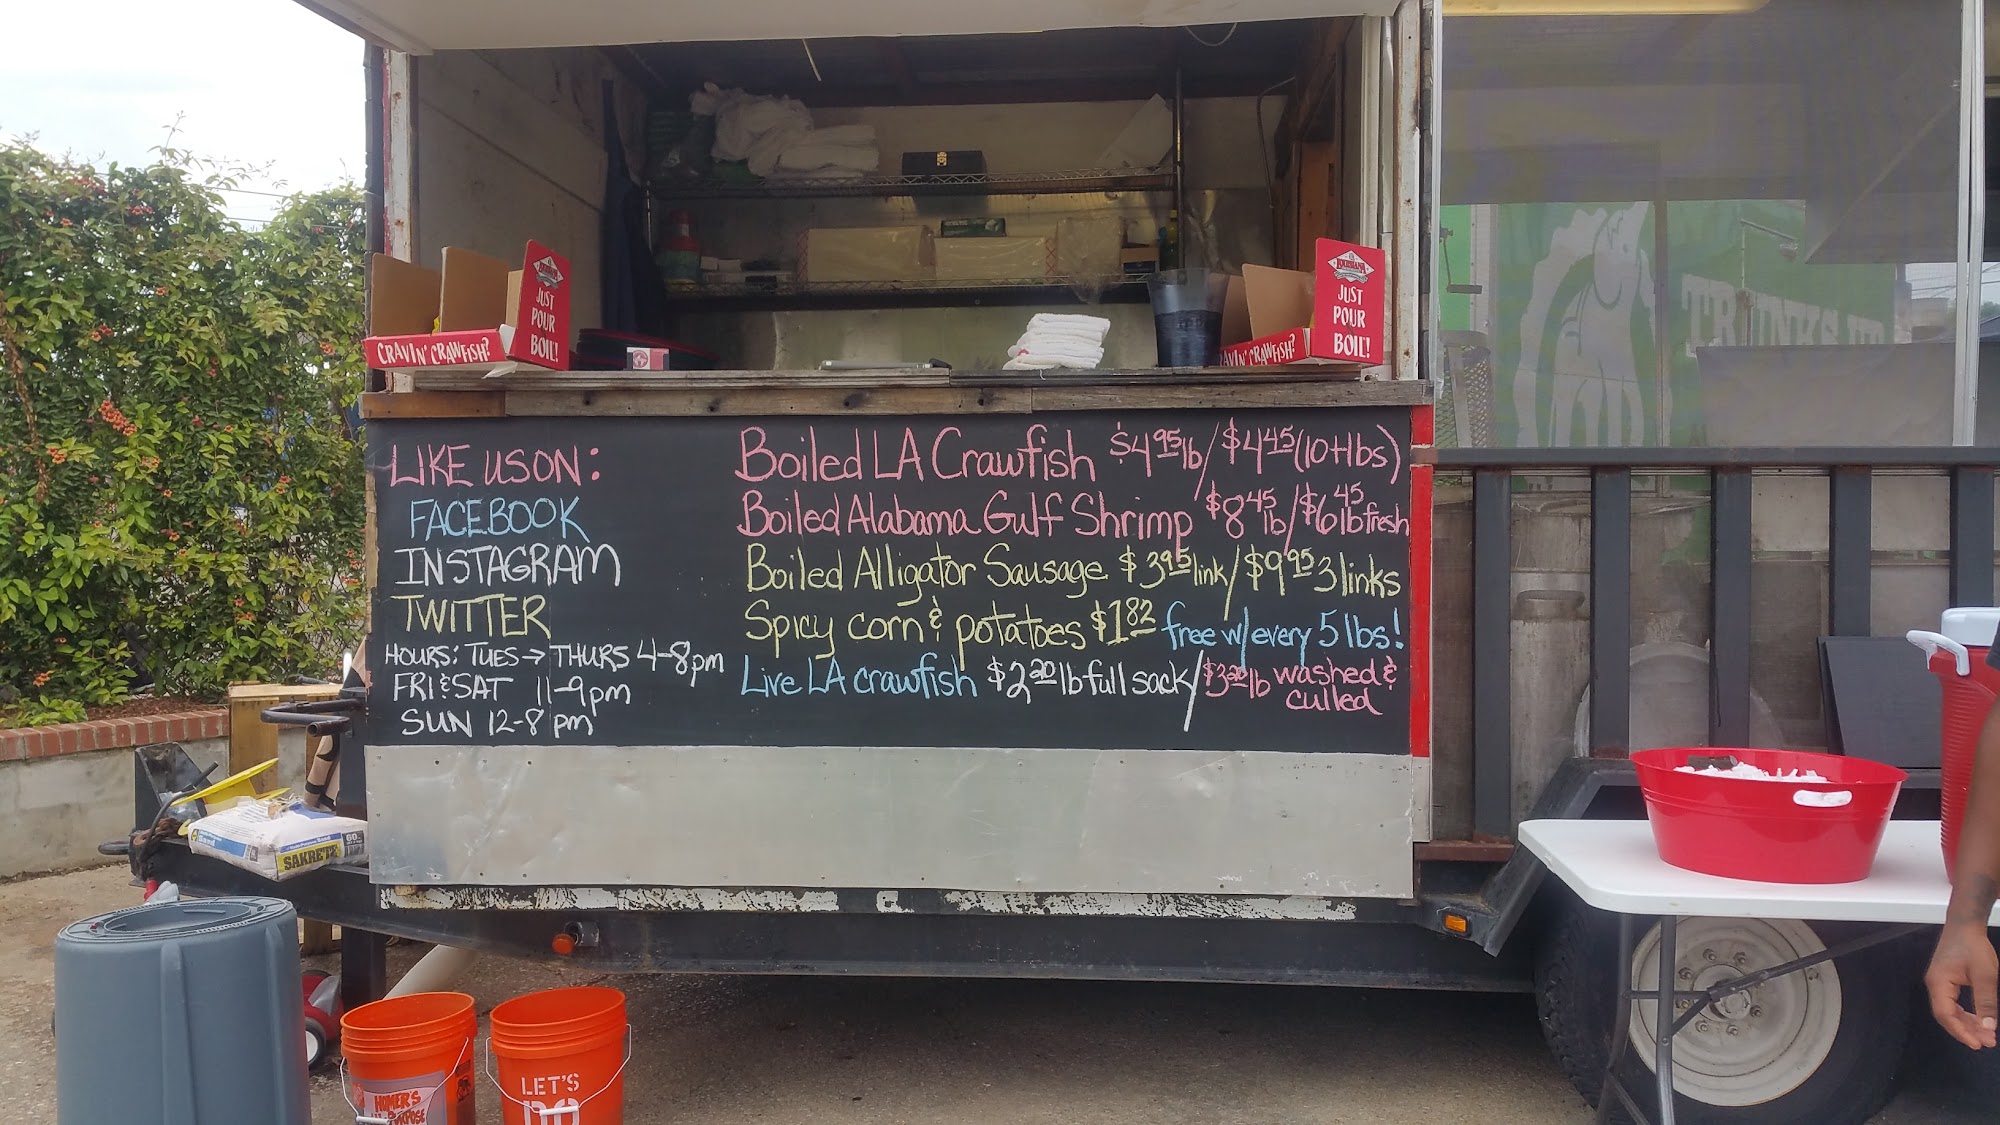 LIKE US ON:
FACEBOOK
INSTAGRAM
TWITTER
HOURS: TUES → THURS 4-8pm
FRI & SAT 11-9pm
SUN 12-8 pm
Boiled LA Crawfish $4.95 lb/$4.45 (10+lbs)
Boiled Alabama Gulf Shrimp $8.45 lb/$6.45 lb fresh
Boiled Alligator Sausage $3.95 link/$9.95 3 links
Spicy corn & potatoes $1.82 free w/every 5 lbs!
Live LA crawfish $2.20 lb full sack/$3.20 lb washed &
culled
CRAVIN' CRAWFISH?
LOUISIANA
JUST
POUR
BOIL!
CRAWFISH?
LOUISIANA
JUST
POUR
BOIL!
Sand
SAKRETE
60
HOMER'S
LET'S
DO